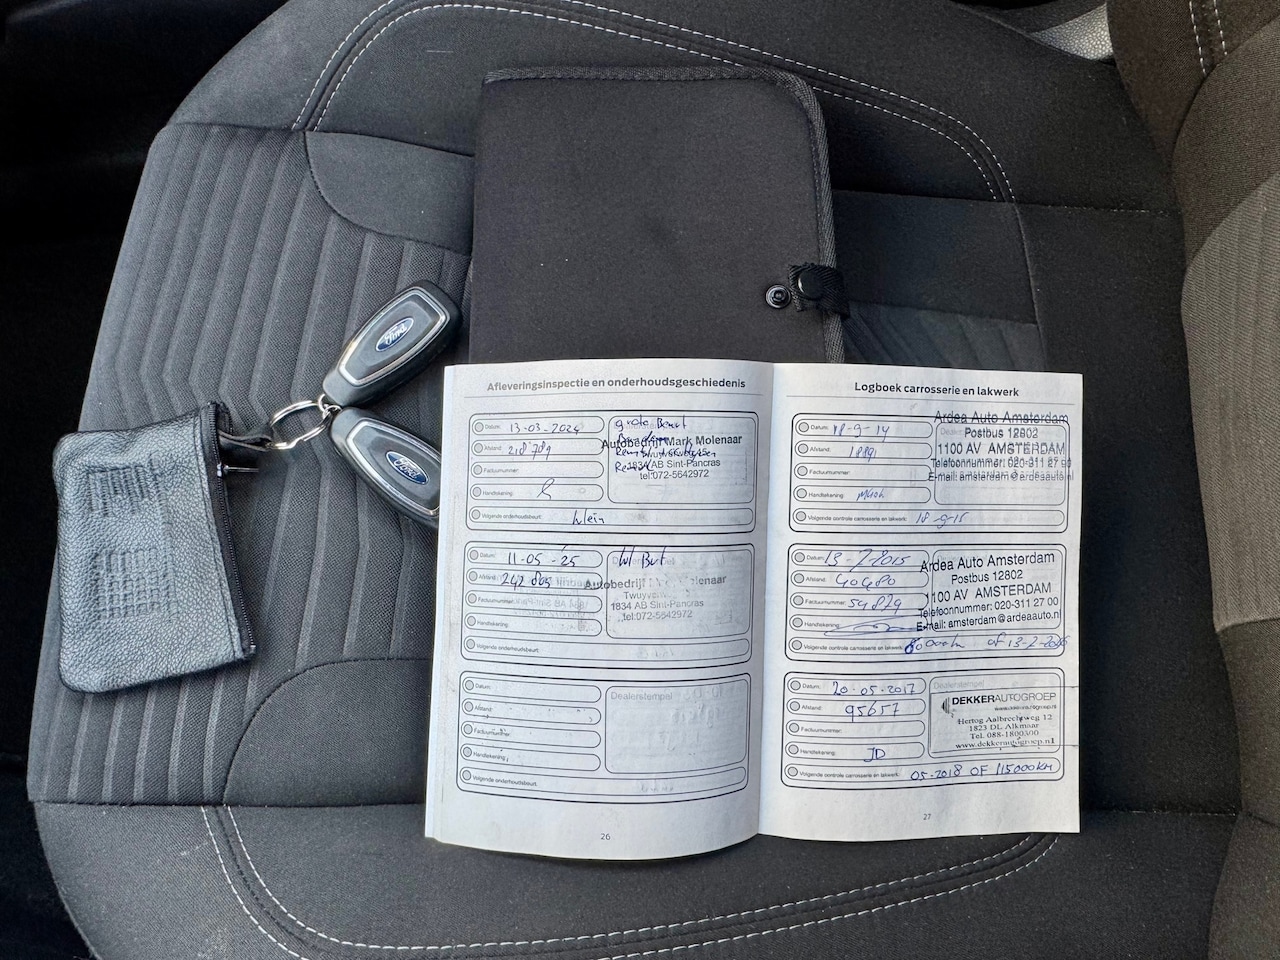 Ford
Ford
Afleveringsinspectie en onderhoudsgeschiedenis
Datum: 13-03-2024
Afstand: 218789
Factuurnummer:
Handtekening:
Volgende onderhoudsbeurt: klein
grote Beurt
Autobedrijf Mark Molenaar
Twuyverweg
1834 AB Sint-Pancras
tel:072-5642972
Datum: 11-05-25
Afstand: 242 805
Factuurnummer:
Handtekening:
Volgende onderhoudsbeurt:
Kl Burt
Autobedrijf Molenaar
1834 AB Sint-Pancras
tel:072-5642972
Datum:
Afstand:
Factuurnummer:
Handtekening:
Volgende onderhoudsbeurt:
Dealerstempel
26
Logboek carrosserie en lakwerk
Datum: 18-9-14
Afstand:
Factuurnummer:
Handtekening:
Volgende controle carrosserie en lakwerk: 18-9-15
Ardea Auto Amsterdam
Postbus 12802
1100 AV AMSTERDAM
Telefoonnummer: 020-311 27 00
E-mail: amsterdam@ardeaauto.nl
Datum: 13-7-2015
Afstand: 40480
Factuurnummer: 54829
Handtekening:
Volgende controle carrosserie en lakwerk:
Ardea Auto Amsterdam
Postbus 12802
1100 AV AMSTERDAM
Telefoonnummer: 020-311 27 00
E-mail: amsterdam@ardeaauto.nl
Datum: 20-05-2017
Afstand: 95657
Factuurnummer:
Handtekening: JD
Volgende controle carrosserie en lakwerk: 05-2018 OF 115000KM
Dealerstempel
DEKKERAUTOGROEP
www.dekkerautogroep.nl
Hertog Aalbrechtweg 12
1823 DL Alkmaar
Tel. 088-1800300
www.dekkerautogroep.nl
27